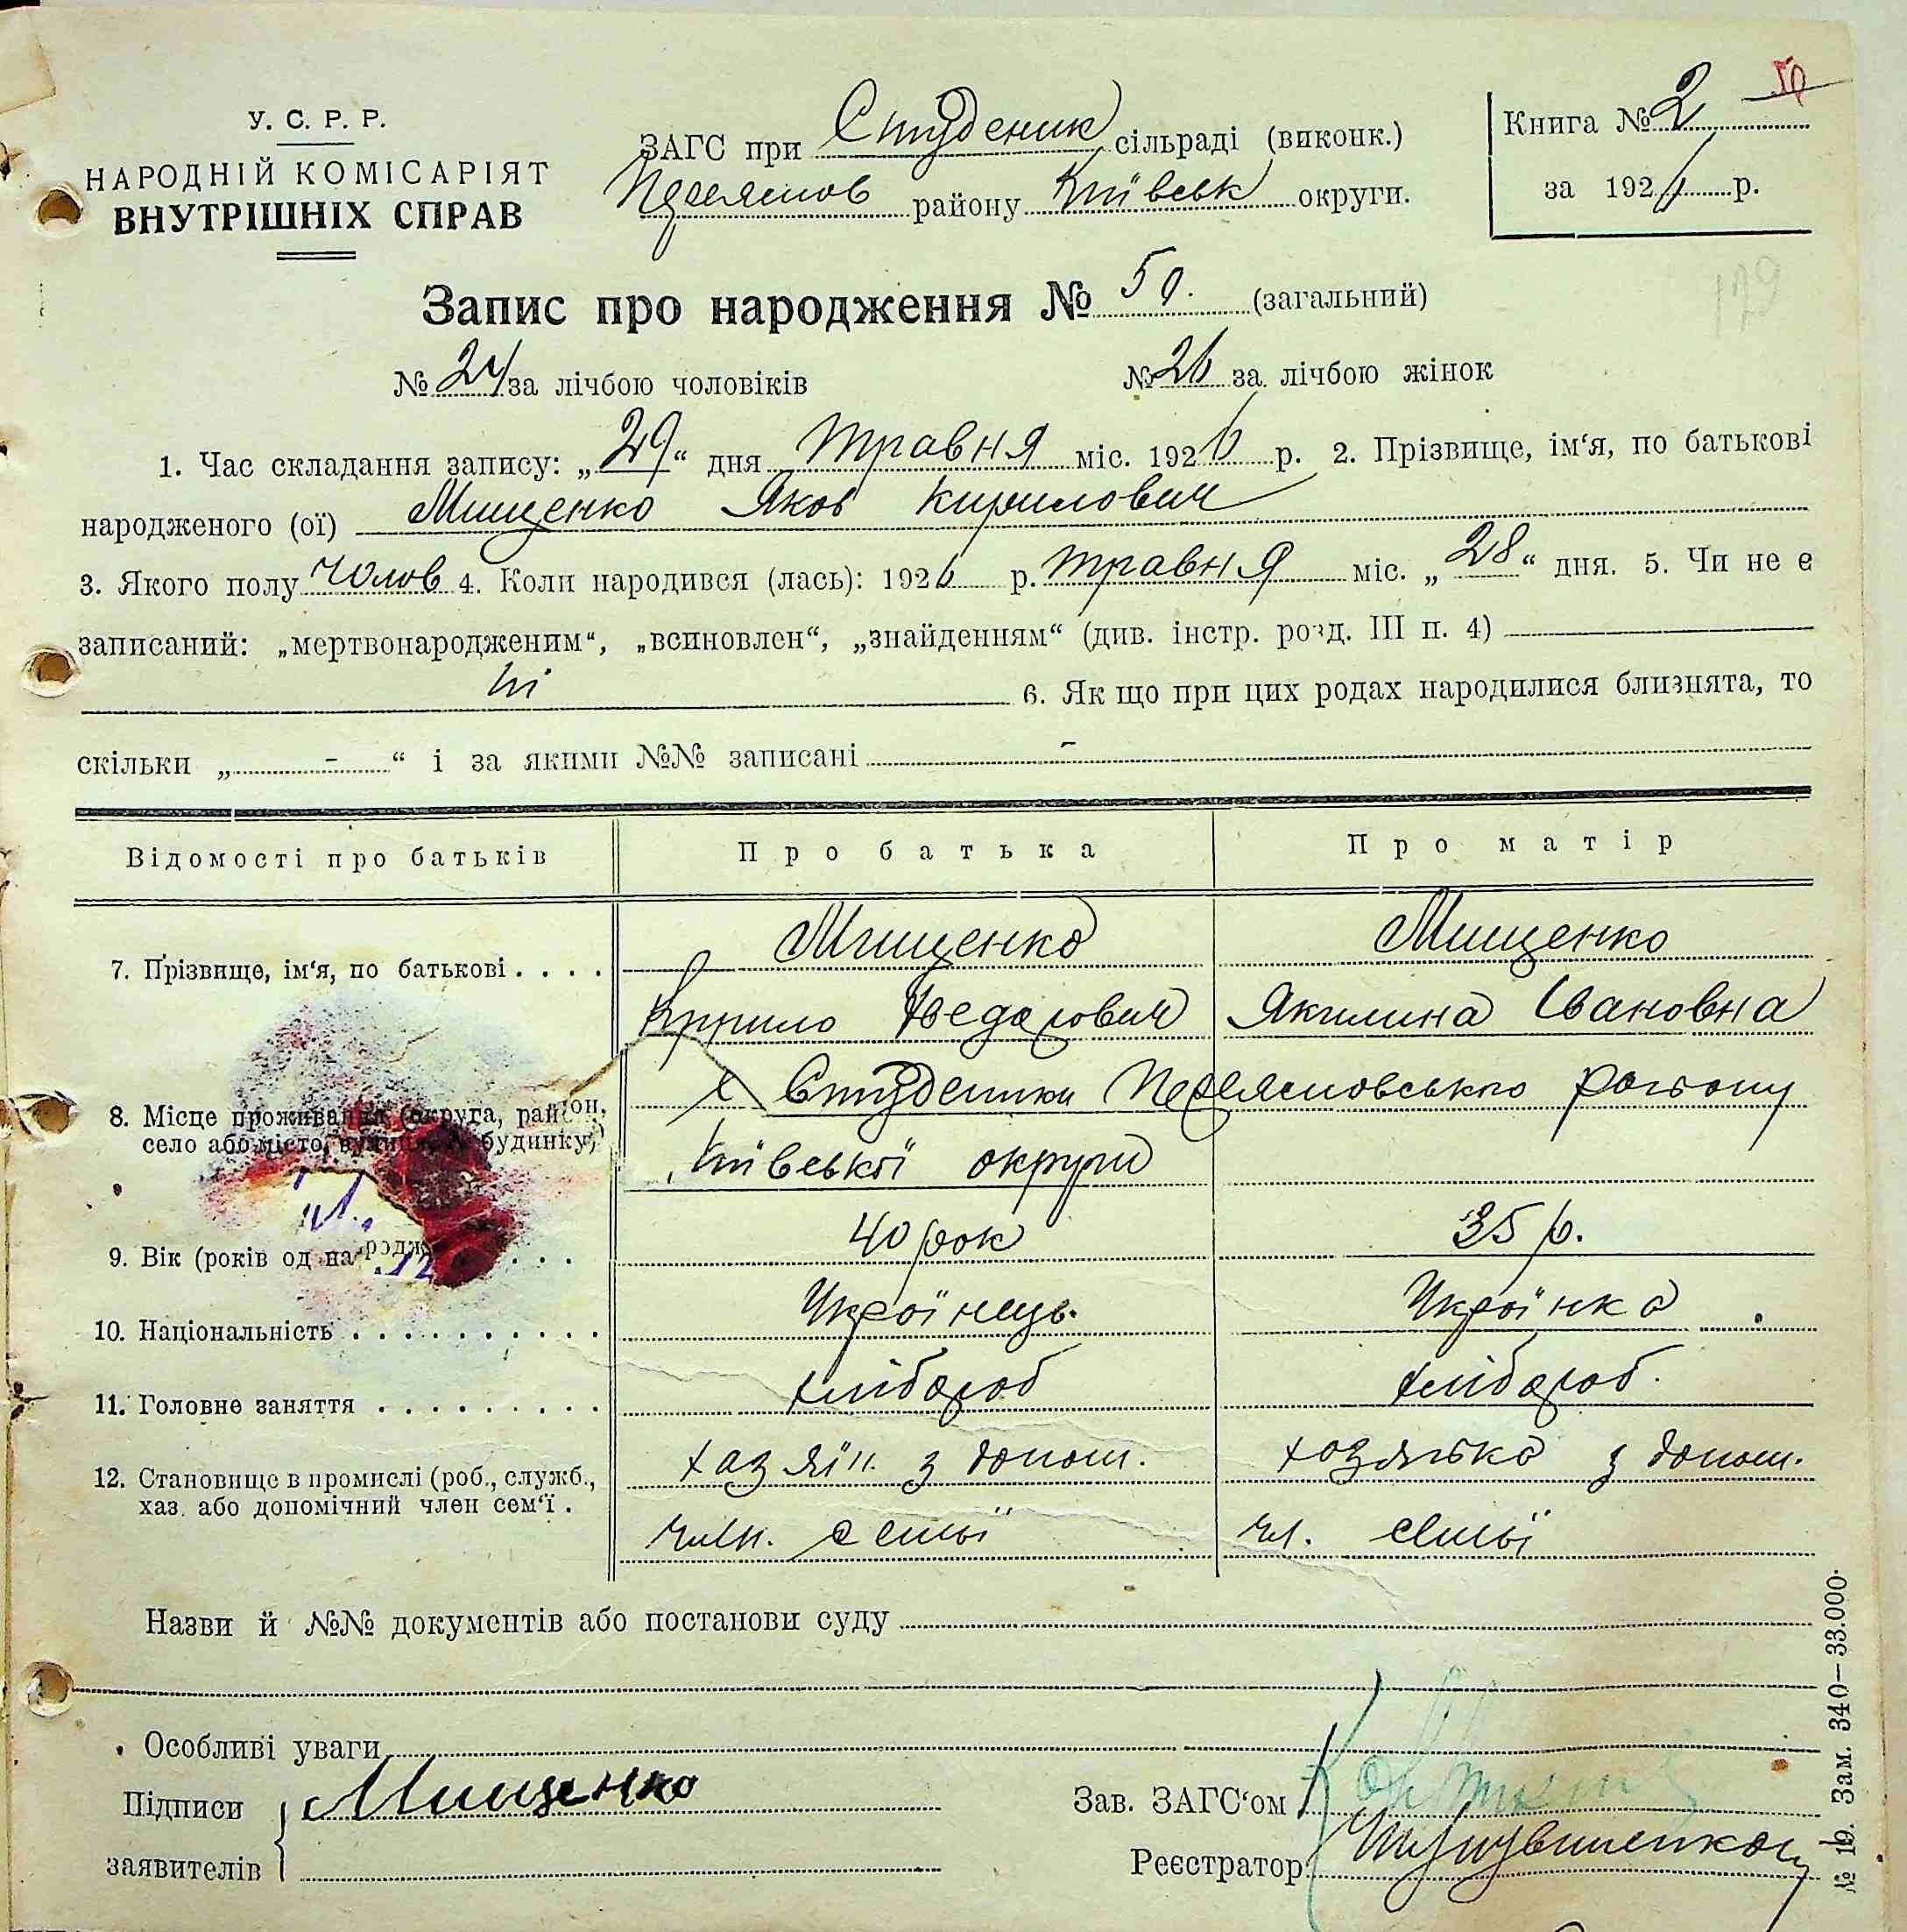 У. С. Р. Р.
НАРОДНІЙ КОМІСАРІЯТ
ВНУТРІШНІХ СПРАВ
ЗАГС при Студеник сільраді (виконк.)
Переяслов району Київськ округи.
Книга № 2 50
за 192 р.
179
Запис про народження № 50. (загальний)
№ 24 за лічбою чоловіків № 26 за лічбою жінок
1. Час складання запису: „29“ дня травня міс. 1926 р. 2. Прізвище, ім‘я, по батькові
народженого (ої) Мищенко Яков Кирилович
3. Якого полу чолов 4. Коли народився (лась): 1926 р. травня міс. „28“ дня. 5. Чи не є
записаний: „мертвонародженим“, „всиновлен“, „знайденням“ (див. інстр. розд. III п. 4)
ні 6. Як що при цих родах народилися близнята, то
скільки „ - “ і за якими №№ записані -
Відомості про батьків Про батька Про матір
7. Прізвище, ім‘я, по батькові . . . . Мищенко Мищенко
Кирило Федорович Якилина Івановна
8. Місце проживання (округа, район, х Студеники Переясловського району
село або місто, вулиця, № будинку) Київської округи
9. Вік (років од народж . . . 40 рок 35 р.
10. Національність . . . . . . . . . . Українець. Українка
11. Головне заняття . . . . . . . . . хлібороб хлібороб.
12. Становище в промислі (роб., служб., хазяїн. з допом. хозяйка з допом.
хаз. або допомічний член сем‘ї . член. семьї чл. семьї
Назви й №№ документів або постанови суду
Особливі уваги
Підписи Мищенко Зав. ЗАГС‘ом
заявителів Реєстратор
№ 19. Зам. 340—33.000.